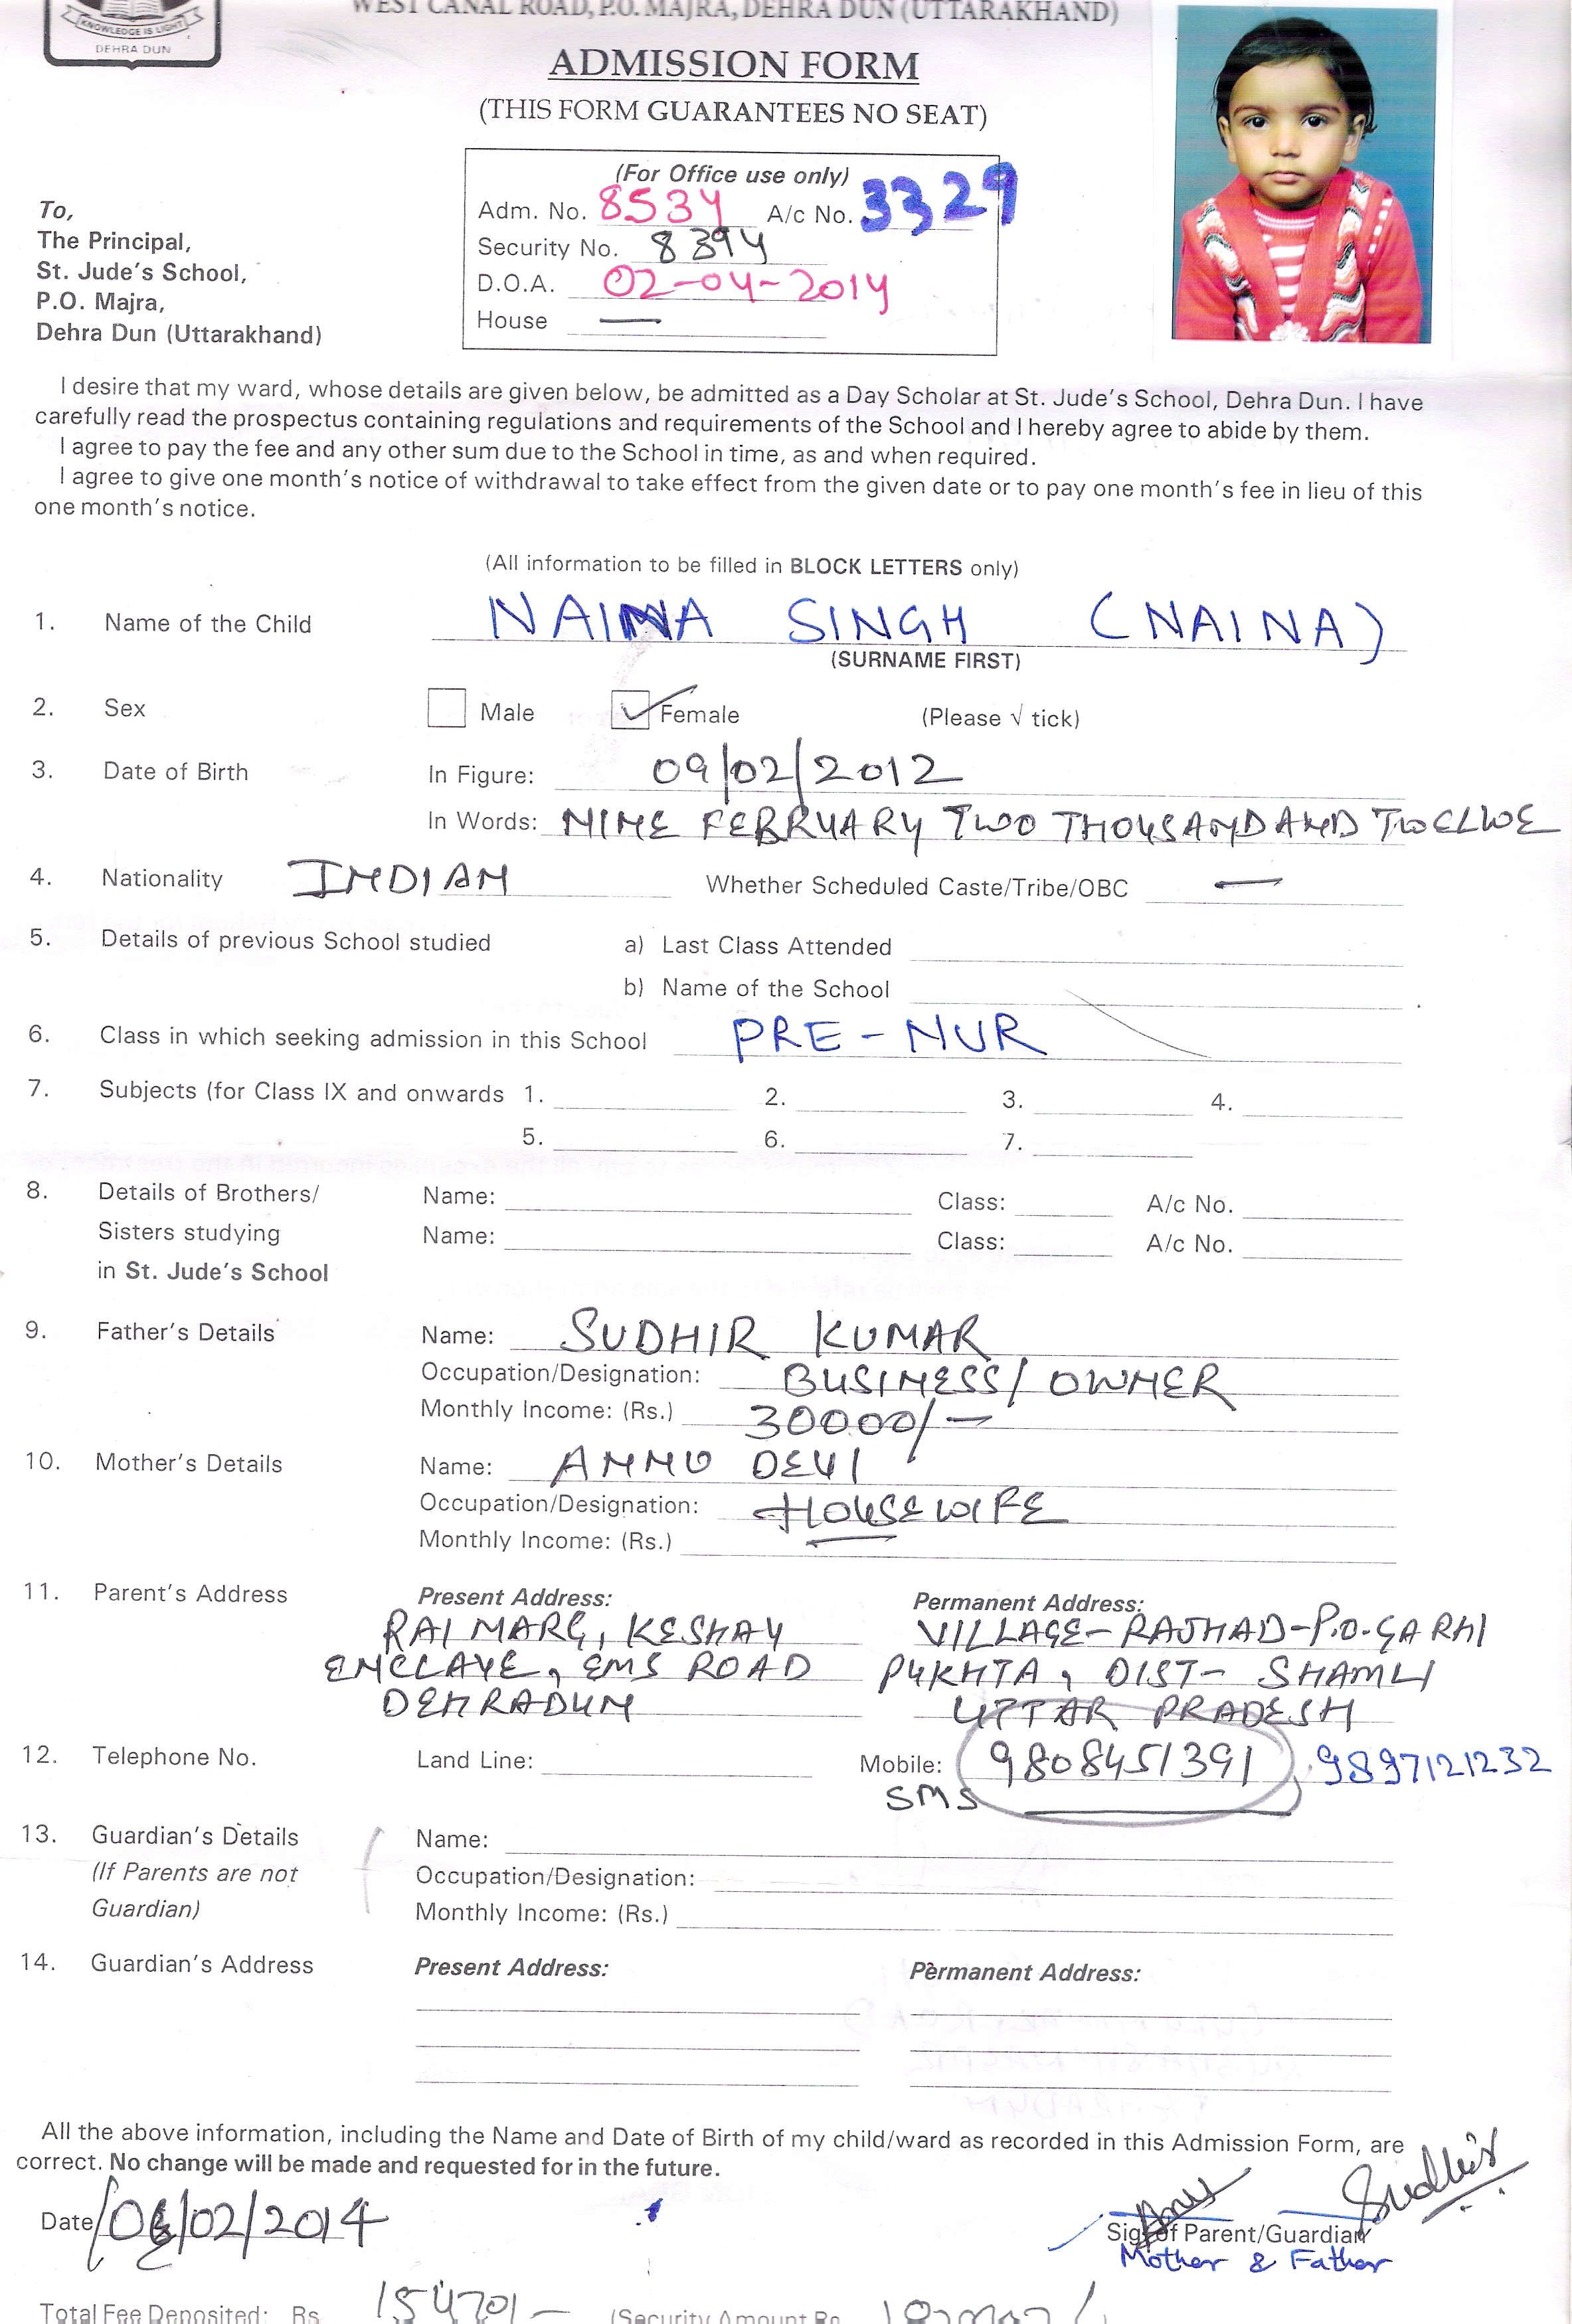 WEST CANAL ROAD, P.O. MAJRA, DEHRA DUN (UTTARAKHAND)
KNOWLEDGE IS LIGHT
DEHRA DUN
ADMISSION FORM
(THIS FORM GUARANTEES NO SEAT)
(For Office use only)
Adm. No. 8534 A/c No. 3329
Security No. 8394
D.O.A. 02-04-2014
House —
To,
The Principal,
St. Jude's School,
P.O. Majra,
Dehra Dun (Uttarakhand)
I desire that my ward, whose details are given below, be admitted as a Day Scholar at St. Jude's School, Dehra Dun. I have
carefully read the prospectus containing regulations and requirements of the School and I hereby agree to abide by them.
I agree to pay the fee and any other sum due to the School in time, as and when required.
I agree to give one month's notice of withdrawal to take effect from the given date or to pay one month's fee in lieu of this
one month's notice.
(All information to be filled in BLOCK LETTERS only)
1. Name of the Child NAINA SINGH (NAINA)
(SURNAME FIRST)
2. Sex Male ✓ Female (Please √ tick)
3. Date of Birth In Figure: 09/02/2012
In Words: NINE FEBRRUARY TWO THOUSAND AND TWELWE
4. Nationality INDIAN Whether Scheduled Caste/Tribe/OBC —
5. Details of previous School studied a) Last Class Attended
b) Name of the School
6. Class in which seeking admission in this School PRE-NUR
7. Subjects (for Class IX and onwards 1. 2. 3. 4.
5. 6. 7.
8. Details of Brothers/ Name: Class: A/c No.
Sisters studying Name: Class: A/c No.
in St. Jude's School
9. Father's Details Name: SUDHIR KUMAR
Occupation/Designation: BUSINESS/OWNER
Monthly Income: (Rs.) 30000/-
10. Mother's Details Name: ANNU DEVI
Occupation/Designation: HOUSEWIFE
Monthly Income: (Rs.)
11. Parent's Address Present Address: Permanent Address:
RAI MARG, KESHAV VILLAGE-RAJHAD-P.O.GARHI
ENCLAVE, GMS ROAD PUKHTA, DIST- SHAMLI
DEHRADUN UTTAR PRADESH
12. Telephone No. Land Line: Mobile: 9808451391, 9897121232
SMS
13. Guardian's Details Name:
(If Parents are not Occupation/Designation:
Guardian) Monthly Income: (Rs.)
14. Guardian's Address Present Address: Permanent Address:
All the above information, including the Name and Date of Birth of my child/ward as recorded in this Admission Form, are
correct. No change will be made and requested for in the future.
Sudhir
Date /02/2014 Sig. of Parent/Guardian
Mother & Father
Total Fee Deposited: Rs. (Security Amount Rs.